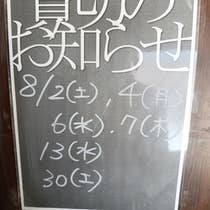 貸切の
お知らせ
8/2(土)、4(月)
6(水)、7(木)
13(水)
30(土)